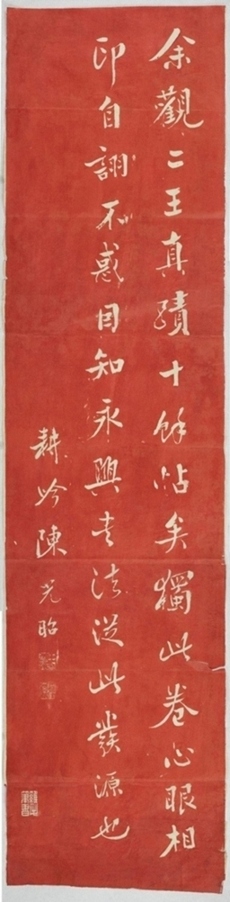 余觀二王真蹟十餘帖矣獨此卷心眼相
印自詡不惑因知永興書法從此發源也
耕吟陳光昭